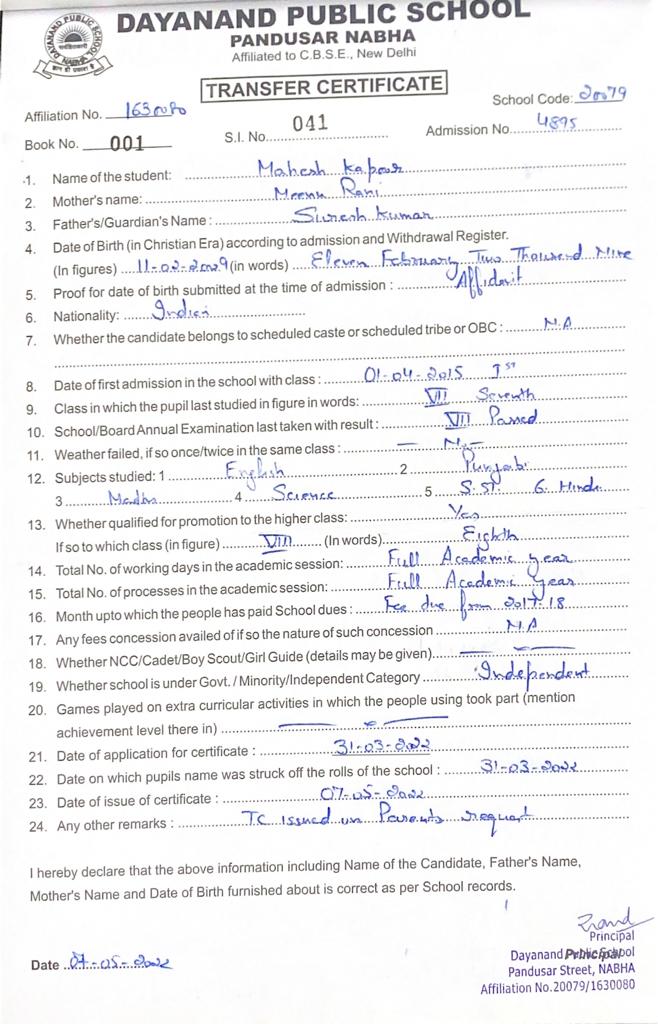 DAYANAND PUBLIC SCHOOL
PANDUSAR NABHA
Affiliated to C.B.S.E., New Delhi
DAYANAND PUBLIC SCHOOL
NABHA
TRANSFER CERTIFICATE
Affiliation No. 1630080 School Code: 20079
Book No. 001 S.I. No. 041 Admission No. 4895
1. Name of the student: Mahesh Kapoor
2. Mother's name: Meenu Rani
3. Father's/Guardian's Name : Suresh Kumar
4. Date of Birth (in Christian Era) according to admission and Withdrawal Register.
(In figures) 11-02-2009 (in words) Eleven February Two Thousand Nine
5. Proof for date of birth submitted at the time of admission : Affidavit
6. Nationality: Indian
7. Whether the candidate belongs to scheduled caste or scheduled tribe or OBC : N.A
8. Date of first admission in the school with class : 01-04-2015 Ist
9. Class in which the pupil last studied in figure in words: VII Seventh
10. School/Board Annual Examination last taken with result : VII Passed
11. Weather failed, if so once/twice in the same class : — No —
12. Subjects studied: 1 English 2 Punjabi
3 Maths 4 Science 5 S.St. 6. Hindi
13. Whether qualified for promotion to the higher class: Yes
If so to which class (in figure) VIII (In words) Eighth
14. Total No. of working days in the academic session: Full Academic year
15. Total No. of processes in the academic session: Full Academic Year
16. Month upto which the people has paid School dues : Fee due from 2017-18
17. Any fees concession availed of if so the nature of such concession N.A
18. Whether NCC/Cadet/Boy Scout/Girl Guide (details may be given) — —
19. Whether school is under Govt. / Minority/Independent Category Independent
20. Games played on extra curricular activities in which the people using took part (mention
achievement level there in)
21. Date of application for certificate : 31-03-2022
22. Date on which pupils name was struck off the rolls of the school : 31-03-2022
23. Date of issue of certificate : 07-05-2022
24. Any other remarks : TC issued on Parents request
I hereby declare that the above information including Name of the Candidate, Father's Name,
Mother's Name and Date of Birth furnished about is correct as per School records.
Principal
Date 07-05-2022 Dayanand Public School
Principal
Pandusar Street, NABHA
Affiliation No.20079/1630080